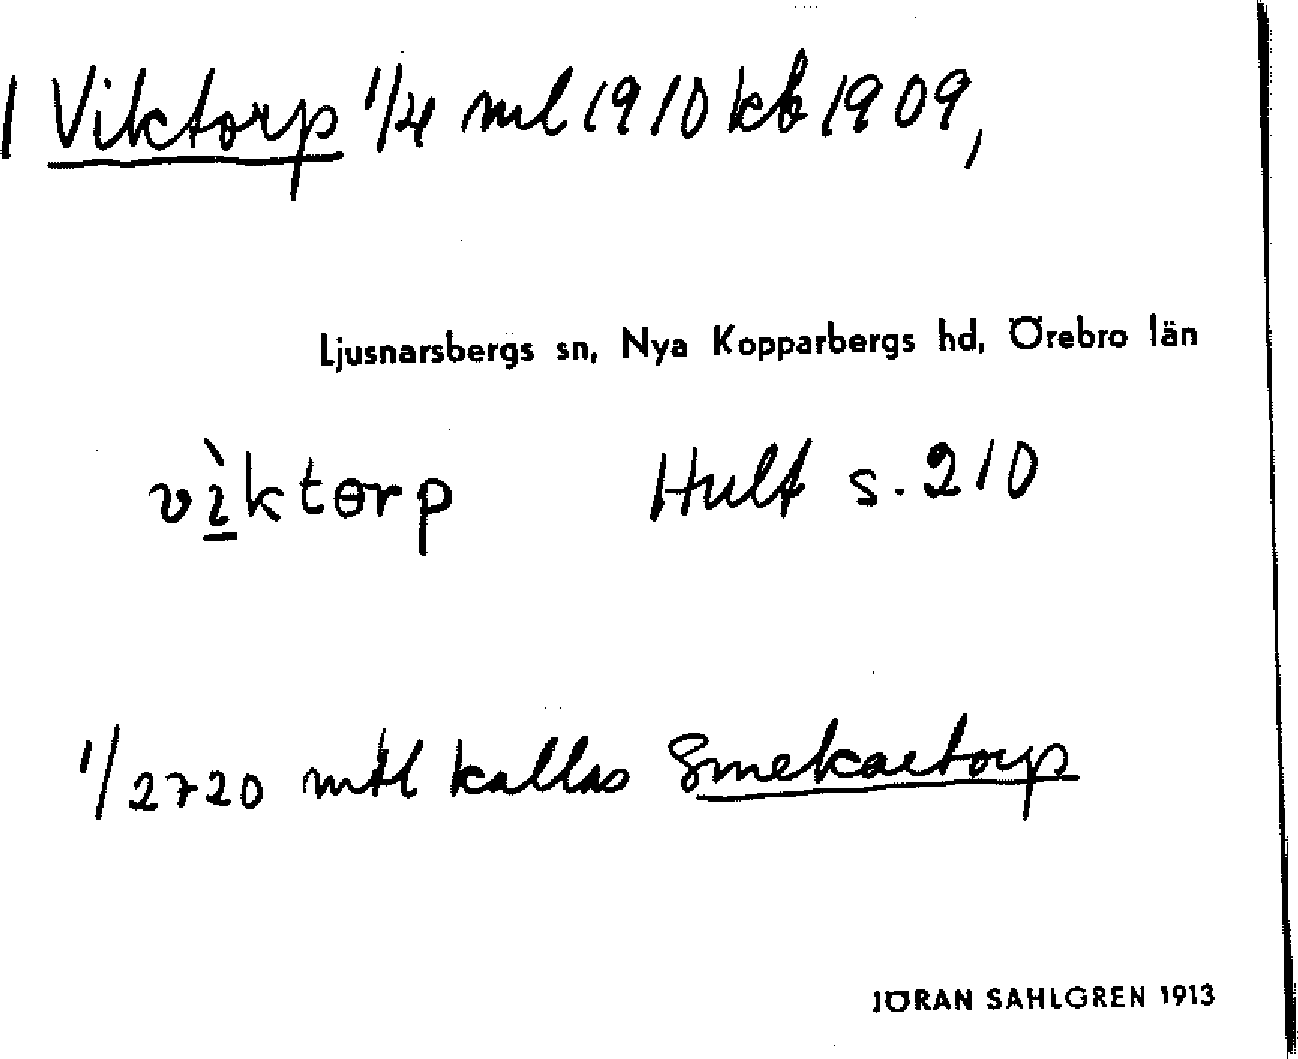 1 Viktorp 1/4 ml 1910 kb 1909,
Ljusnarsbergs sn, Nya Kopparbergs hd, Örebro län
vìktɵrp Hult s. 210
1/2720 mtl kallas Smekaretorp
JÖRAN SAHLGREN 1913